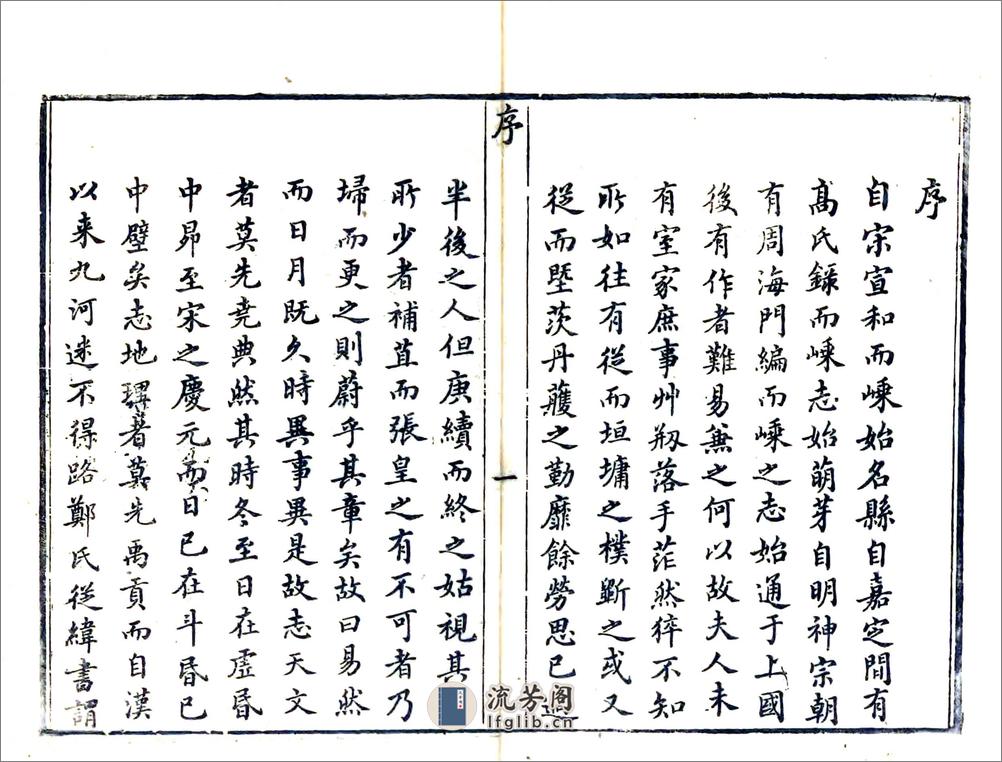 序
自宋宣和而嵊始名縣自嘉定間有
髙氏錄而嵊志始萌芽自明神宗朝
有周海門編而嵊之志始通于上國
後有作者難易兼之何以故夫人未
有室家庶事艸刱落手茫然猝不知
所如往有從而垣墉之樸斲之或又
從而塈茨丹雘之勤靡餘勞思已過
序
一
半後之人但庚續而終之姑視其
所少者補苴而張皇之有不可者乃
埽而更之則蔚乎其章矣故曰易然
而日月既久時異事異是故志天文
者莫先堯典然其時冬至日在虛昏
中昴至宋之慶元而日已在斗昏已
中壁矣志地理者莫先禹貢而自漢
以来九河迷不得路鄭氏從緯書謂
流芳阁
lfglib.cn